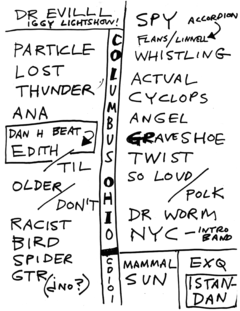 DR EVILLL
IGGY LIGHTSHOW!
PARTICLE
LOST
THUNDER
ANA
DAN H BEAT
EDITH
TIL
OLDER
DON'T
RACIST
BIRD
SPIDER
GTR
(¿NO?)
COLUMBUS OHIO
SPY ACCORDION
FLANS/LINNELL
WHISTLING
ACTUAL
CYCLOPS
ANGEL
GRAVESHOE
TWIST
SO LOUD
POLK
DR WORM
NYC - INTRO
BAND
MAMMAL
SUN
EXQ
ISTAN-
DAN